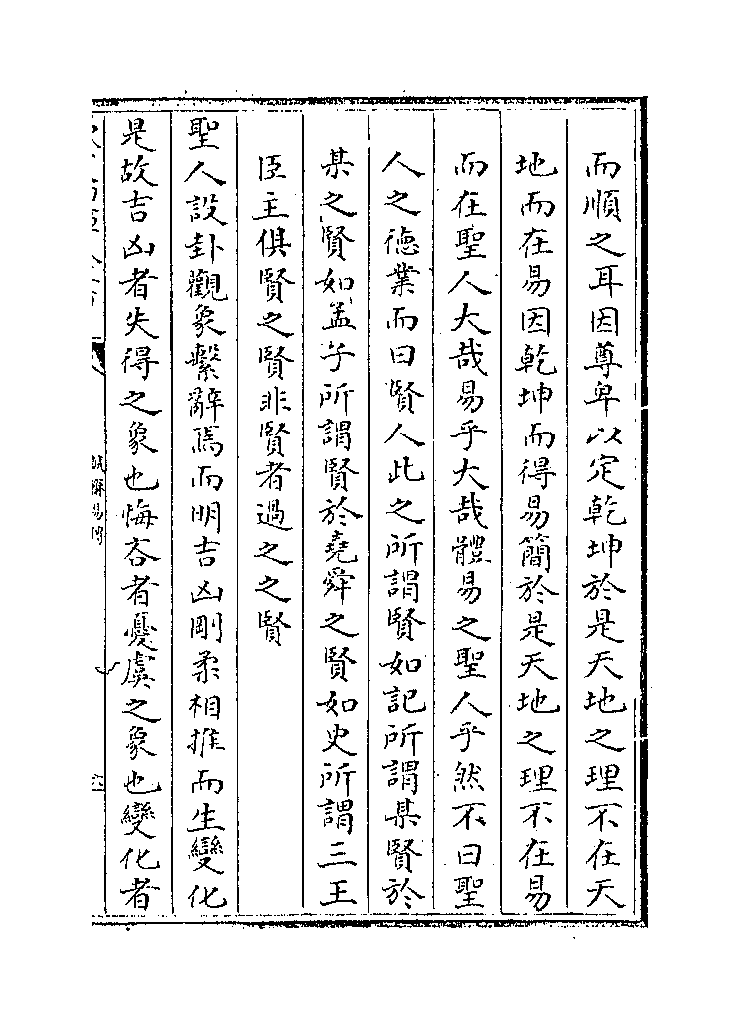 而順之耳因尊卑以定乾坤於是天地之理不在天
地而在易因乾坤而得易簡於是天地之理不在易
而在聖人大哉易乎大哉體易之聖人乎然不曰聖
人之徳業而曰賢人此之所謂賢如記所謂某賢於
某之賢如孟子所謂賢於堯舜之賢如史所謂三王
臣主俱賢之賢非賢者過之之賢
聖人設卦觀象繫辭焉而明吉凶剛柔相推而生變化
是故吉凶者失得之象也悔吝者憂虞之象也變化者
誠齋易傳